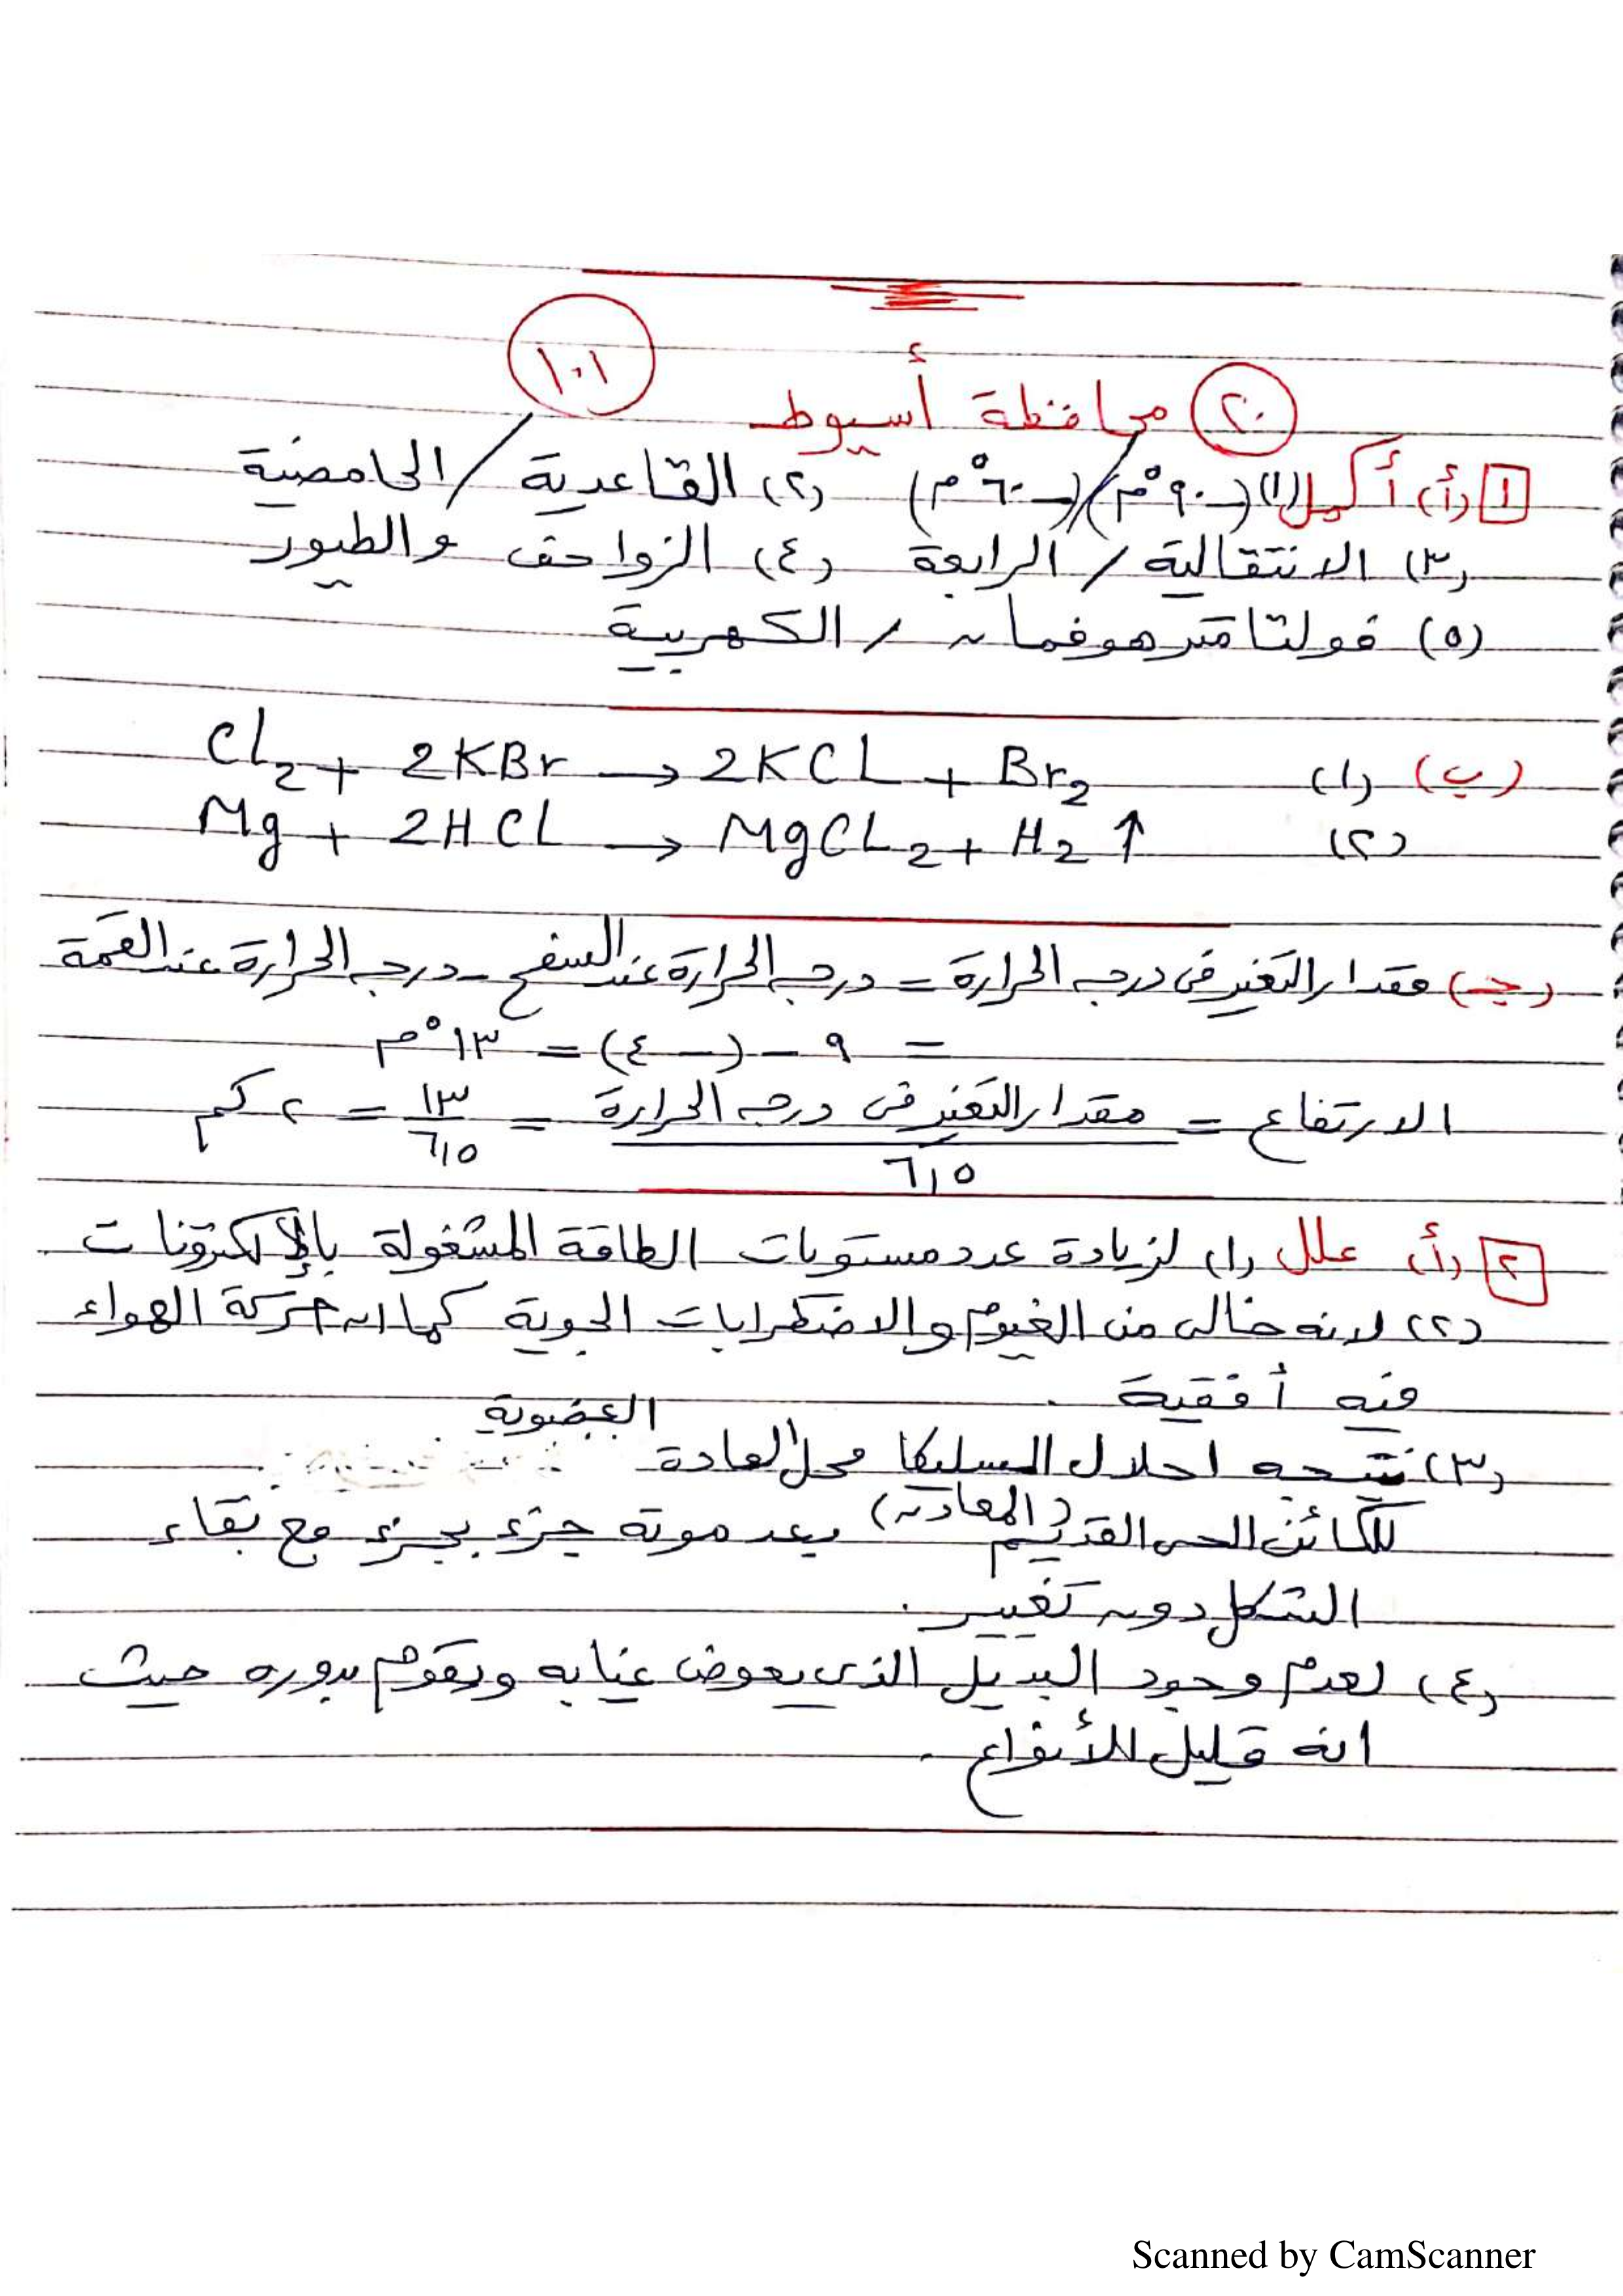 ١٠١
٢٠ محافظة أسيوط
١ (أ) أكمل (١) (-٩٠°م)/(-٦٠°م) (٢) القاعدية / الحامضية
(٣) الانتقالية / الرابعة (٤) الزواحف والطيور
(٥) فولتامتر هوفمان / الكهربية
(ب) (١) Cl2 + 2KBr → 2KCL + Br2
(٢) Mg + 2HCL → MgCL2 + H2 ↑
(جـ) مقدار التغير فى درجه الحرارة = درجه الحرارة عند السفح - درجه الحرارة عند القمة
= ٩ - (-٤) = ١٣°م
الارتفاع = مقدار التغير فى درجه الحرارة / ٦,٥ = ١٣ / ٦,٥ = ٢ كم
٢ (أ) علل (١) لزيادة عدد مستويات الطاقة المشغولة بالإلكترونات
(٢) لانه خالى من الغيوم والاضطرابات الجوية كما ان حركة الهواء
فيه أفقية .
(٣) نتيجه احلال السليكا محل المادة العضوية
(المعادن) للكائن الحى القديم بعد موته جزء بجزء مع بقاء
الشكل دون تغيير .
(٤) لعدم وجود البديل الذى يعوض غيابه ويقوم بدوره حيث
انه قليل الأنواع .
Scanned by CamScanner